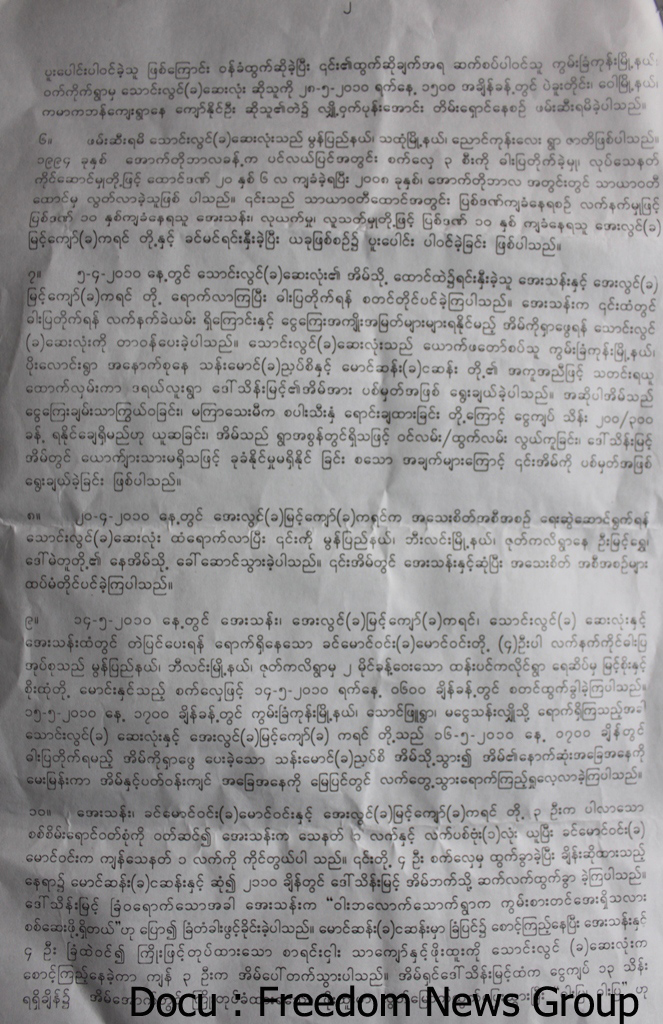 ၂
ပူးပေါင်းပါဝင်ခဲ့သူ ဖြစ်ကြောင်း ဝန်ခံထွက်ဆိုခဲ့ပြီး ၎င်း၏ထွက်ဆိုချက်အရ ဆက်စပ်ပါဝင်သူ ကွမ်းခြံကုန်းမြို့နယ်၊
ဝက်ကိုက်ရွာမှ သောင်းလွင်(ခ)ဆေးလုံး ဆိုသူကို ၂၈-၅-၂၀၁၀ ရက်နေ့ ၁၅၀၀ အချိန်ခန့်တွင် ပဲခူးတိုင်း၊ ဝေါမြို့နယ်၊
ကမာကဘန်ကျေးရွာနေ ကျော်နိုင်ဦး ဆိုသူ၏တဲ၌ လျှို့ဝှက်ပုန်းအောင်း တိမ်းရှောင်နေစဉ် ဖမ်းဆီးရမိခဲ့ပါသည်။
၆။ ဖမ်းဆီးရမိ သောင်းလွင်(ခ)ဆေးလုံးသည် မွန်ပြည်နယ်၊ သထုံမြို့နယ်၊ ညောင်ကုန်းလေး ရွာ ဇာတိဖြစ်ပါသည်။
၁၉၉၄ ခုနှစ် အောက်တိုဘာလခန့်က ပင်လယ်ပြင်အတွင်း စက်လှေ ၃ စီးကို ဓါးပြတိုက်ခဲ့မှု၊ လုပ်သေနတ်
ကိုင်ဆောင်မှုတို့ဖြင့် ထောင်ဒဏ် ၂၀ နှစ် ၆ လ ကျခံခဲ့ရပြီး ၂၀၀၈ ခုနှစ်၊ အောက်တိုဘာလ အတွင်းတွင် သာယာဝတီ
ထောင်မှ လွတ်လာခဲ့သူဖြစ် ပါသည်။ ၎င်းသည် သာယာဝတီထောင်အတွင်း ပြစ်ဒဏ်ကျခံနေရစဉ် လက်နက်မှုဖြင့်
ပြစ်ဒဏ် ၁၀ နှစ်ကျခံနေရသူ အေးသန်း၊ လုယက်မှု၊ လူသတ်မှုတို့ဖြင့် ပြစ်ဒဏ် ၁၀ နှစ် ကျခံနေရသူ အေးလွင်(ခ)
မြင့်ကျော်(ခ)ကရင် တို့နှင့် ခင်မင်ရင်းနှီးခဲ့ပြီး ယခုဖြစ်စဉ်၌ ပူးပေါင်း ပါဝင်ခဲ့ခြင်း ဖြစ်ပါသည်။
၇။ ၅-၄-၂၀၁၀ နေ့တွင် သောင်းလွင်(ခ)ဆေးလုံး၏ အိမ်သို့ ထောင်ထဲ၌ရင်းနှီးခဲ့သူ အေးသန်းနှင့် အေးလွင်(ခ)
မြင့်ကျော်(ခ)ကရင် တို့ ရောက်လာကြပြီး ဓါးပြတိုက်ရန် စတင်တိုင်ပင်ခဲ့ကြပါသည်။ အေးသန်းက ၎င်းထံတွင်
ဓါးပြတိုက်ရန် လက်နက်ခဲယမ်း ရှိကြောင်းနှင့် ငွေကြေးအကျိုးအမြတ်များများရနိုင်မည့် အိမ်ကိုရှာဖွေရန် သောင်းလွင်
(ခ)ဆေးလုံးကို တာဝန်ပေးခဲ့ပါသည်။ သောင်းလွင်(ခ)ဆေးလုံးသည် ယောက်ဖတော်စပ်သူ ကွမ်းခြံကုန်းမြို့နယ်၊
ပိုးလောင်းရွာ အနောက်စုနေ သန်းမောင်(ခ)ညပ်စိနှင့် မောင်ဆန်း(ခ)ငဆန်း တို့၏ အကူအညီဖြင့် သတင်းရယူ
ထောက်လှမ်းကာ ဒရယ်လူးရွာ ဒေါ်သိန်းမြင့်၏အိမ်အား ပစ်မှတ်အဖြစ် ရွေးချယ်ခဲ့ပါသည်။ အဆိုပါအိမ်သည်
ငွေကြေးချမ်းသာကြွယ်ဝခြင်း၊ မကြာသေးမီက စပါးသီးနှံ ရောင်းချထားခြင်း တို့ကြောင့် ငွေကျပ် သိန်း ၂၀၀/၃၀၀
ခန့် ရနိုင်ချေရှိမည်ဟု ယူဆခြင်း၊ အိမ်သည် ရွာအစွန်တွင်ရှိသဖြင့် ဝင်လမ်း/ထွက်လမ်း လွယ်ကူခြင်း၊ ဒေါ်သိန်းမြင့်
အိမ်တွင် ယောက်ျားသားမရှိသဖြင့် ခုခံနိုင်မှုမရှိနိုင် ခြင်း စသော အချက်များကြောင့် ၎င်းအိမ်ကို ပစ်မှတ်အဖြစ်
ရွေးချယ်ခဲ့ခြင်း ဖြစ်ပါသည်။
၈။ ၂၀-၄-၂၀၁၀ နေ့တွင် အေးလွင်(ခ)မြင့်ကျော်(ခ)ကရင်က အသေးစိတ်အစီအစဉ် ရေးဆွဲဆောင်ရွက်ရန်
သောင်းလွင်(ခ)ဆေးလုံး ထံရောက်လာပြီး ၎င်းကို မွန်ပြည်နယ်၊ ဘီးလင်းမြို့နယ်၊ ဇုတ်ကလိရွာနေ ဦးမြင့်ရွှေ၊
ဒေါ်မဲတူတို့၏ နေအိမ်သို့ ခေါ်ဆောင်သွားခဲ့ပါသည်။ ၎င်းအိမ်တွင် အေးသန်းနှင့်ဆုံပြီး အသေးစိတ် အစီအစဉ်များ
ထပ်မံတိုင်ပင်ခဲ့ကြပါသည်။
၉။ ၁၄-၅-၂၀၁၀ နေ့တွင် အေးသန်း၊ အေးလွင်(ခ)မြင့်ကျော်(ခ)ကရင်၊ သောင်းလွင်(ခ) ဆေးလုံးနှင့်
အေးသန်းထံတွင် တဲပြင်ပေးရန် ရောက်ရှိနေသော ခင်မောင်ဝင်း(ခ)မောင်ဝင်းတို့ (၄)ဦးပါ လက်နက်ကိုင်ဓါးပြ
အုပ်စုသည် မွန်ပြည်နယ်၊ ဘီးလင်းမြို့နယ်၊ ဇုတ်ကလိရွာမှ ၂ မိုင်ခန့်ဝေးသော ထန်းပင်ကလိုင်ရွာ ရေဆိပ်မှ မြင့်စိုးနှင့်
စိုးထုံတို့ မောင်းနှင်သည့် စက်လှေဖြင့် ၁၄-၅-၂၀၁၀ ရက်နေ့ ၀၆၀၀ ချိန်ခန့်တွင် စတင်ထွက်ခွါခဲ့ကြပါသည်။
၁၅-၅-၂၀၁၀ နေ့ ၁၇၀၀ ချိန်ခန့်တွင် ကွမ်းခြံကုန်းမြို့နယ်၊ သောင်ဖြူရွာ၊ မငွေသန်းလှတို့သို့ ရောက်ရှိကြသည့်အခါ
သောင်းလွင်(ခ) ဆေးလုံးနှင့် အေးလွင်(ခ)မြင့်ကျော်(ခ) ကရင် တို့သည် ၁၆-၅-၂၀၁၀ နေ့ ၀၇၀၀ ချိန်တွင်
ဓါးပြတိုက်ရမည့် အိမ်ကိုရှာဖွေ ပေးခဲ့သော သန်းမောင်(ခ)ညပ်စိ အိမ်သို့သွား၍ အိမ်၏နောက်ဆုံးအခြေအနေကို
မေးမြန်းကာ အိမ်နှင့်ပတ်ဝန်းကျင် အခြေအနေကို မြေပြင်တွင် လက်တွေ့သွားရောက်ကြည့်ရှုလေ့လာခဲ့ကြပါသည်။
၁၀။ အေးသန်း၊ ခင်မောင်ဝင်း(ခ)မောင်ဝင်းနှင့် အေးလွင်(ခ)မြင့်ကျော်(ခ)ကရင် တို့ ၃ ဦးက ပါလာသော
စစ်စိမ်းရောင်ဝတ်စုံကို ဝတ်ဆင်၍ အေးသန်းက သေနတ် ၁ လက်နှင့် လက်ပစ်ဗုံး(၁)လုံး ယူပြီး ခင်မောင်ဝင်း(ခ)
မောင်ဝင်းက ကျန်သေနတ် ၁ လက်ကို ကိုင်တွယ်ပါ သည်။ ၎င်းတို့ ၄ ဦး စက်လှေမှ ထွက်ခွာခဲ့ပြီး ချိန်းဆိုထားသည့်
နေရာ၌ မောင်ဆန်း(ခ)ငဆန်းနှင့် ဆုံ၍ ၂၁၁၀ ချိန်တွင် ဒေါ်သိန်းမြင့် အိမ်ဘက်သို့ ဆက်လက်ထွက်ခွာ ခဲ့ကြပါသည်။
ဒေါ်သိန်းမြင့် ခြံဝရောက်သောအခါ အေးသန်းက "ဝါးဘလောက်သောက်ရွာက ကွမ်းစားတင်အေးရှိသလား
စစ်ဆေးဖို့ရှိတယ်"ဟု ပြော၍ ခြံတံခါးဖွင့်ခိုင်းခဲ့ပါသည်။ မောင်ဆန်း(ခ)ငဆန်းမှာ ခြံပြင်၌ စောင့်ကြည့်နေပြီး အေးသန်းနှင့်
၄ ဦး ခြံထဲဝင်၍ ကြိုးဖြင့်တုပ်ထားသော စာရင်းငှါး သာကျော်နှင့်ဖိုးထူးကို သောင်းလွင် (ခ)ဆေးလုံးက
စောင့်ကြည့်နေခဲ့ကာ ကျန် ၃ ဦးက အိမ်ပေါ်တက်သွားပါသည်။ အိမ်ရှင်ဒေါ်သိန်းမြင့်ထံက ငွေကျပ် ၁၃ သိန်း
ရရှိချိန်၌
Docu : Freedom News Group